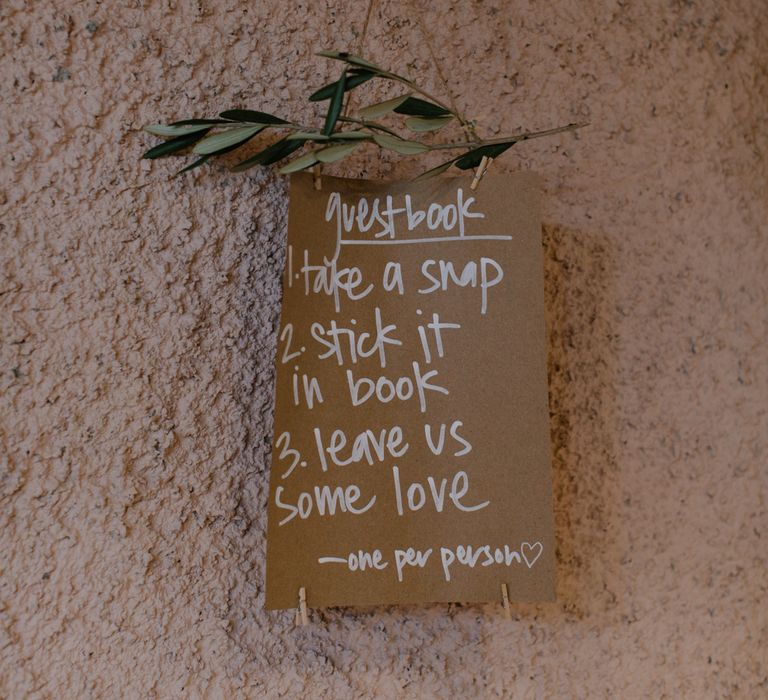 guestbook
1. take a snap
2. stick it
in book
3. leave us
some love
- one per person ♡